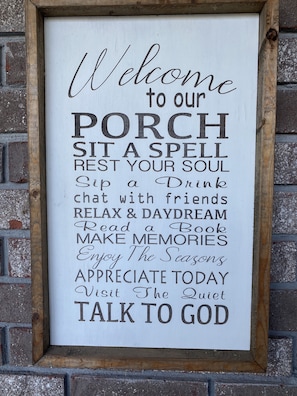 Welcome
to our
PORCH
SIT A SPELL
REST YOUR SOUL
Sip a Drink
chat with friends
RELAX & DAYDREAM
Read a Book
MAKE MEMORIES
Enjoy The Seasons
APPRECIATE TODAY
Visit The Quiet
TALK TO GOD